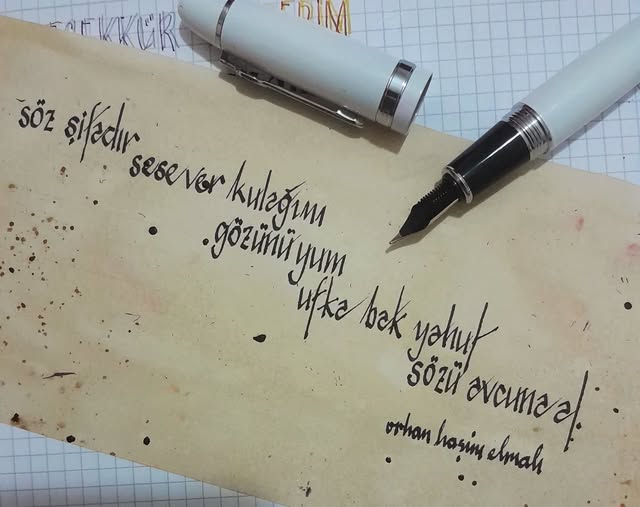 TEŞEKKÜR EDİM
söz şifadır
sese ver kulağını
gözünü yum
ufka bak yahut
sözü avcuna al.
orhan haşim elmalı